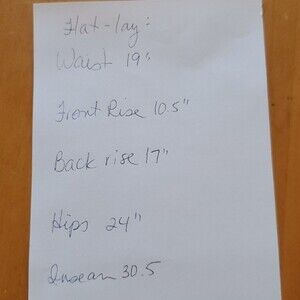 Flat-lay:
Waist 19"
Front Rise 10.5"
Back rise 17"
Hips 24"
Inseam 30.5